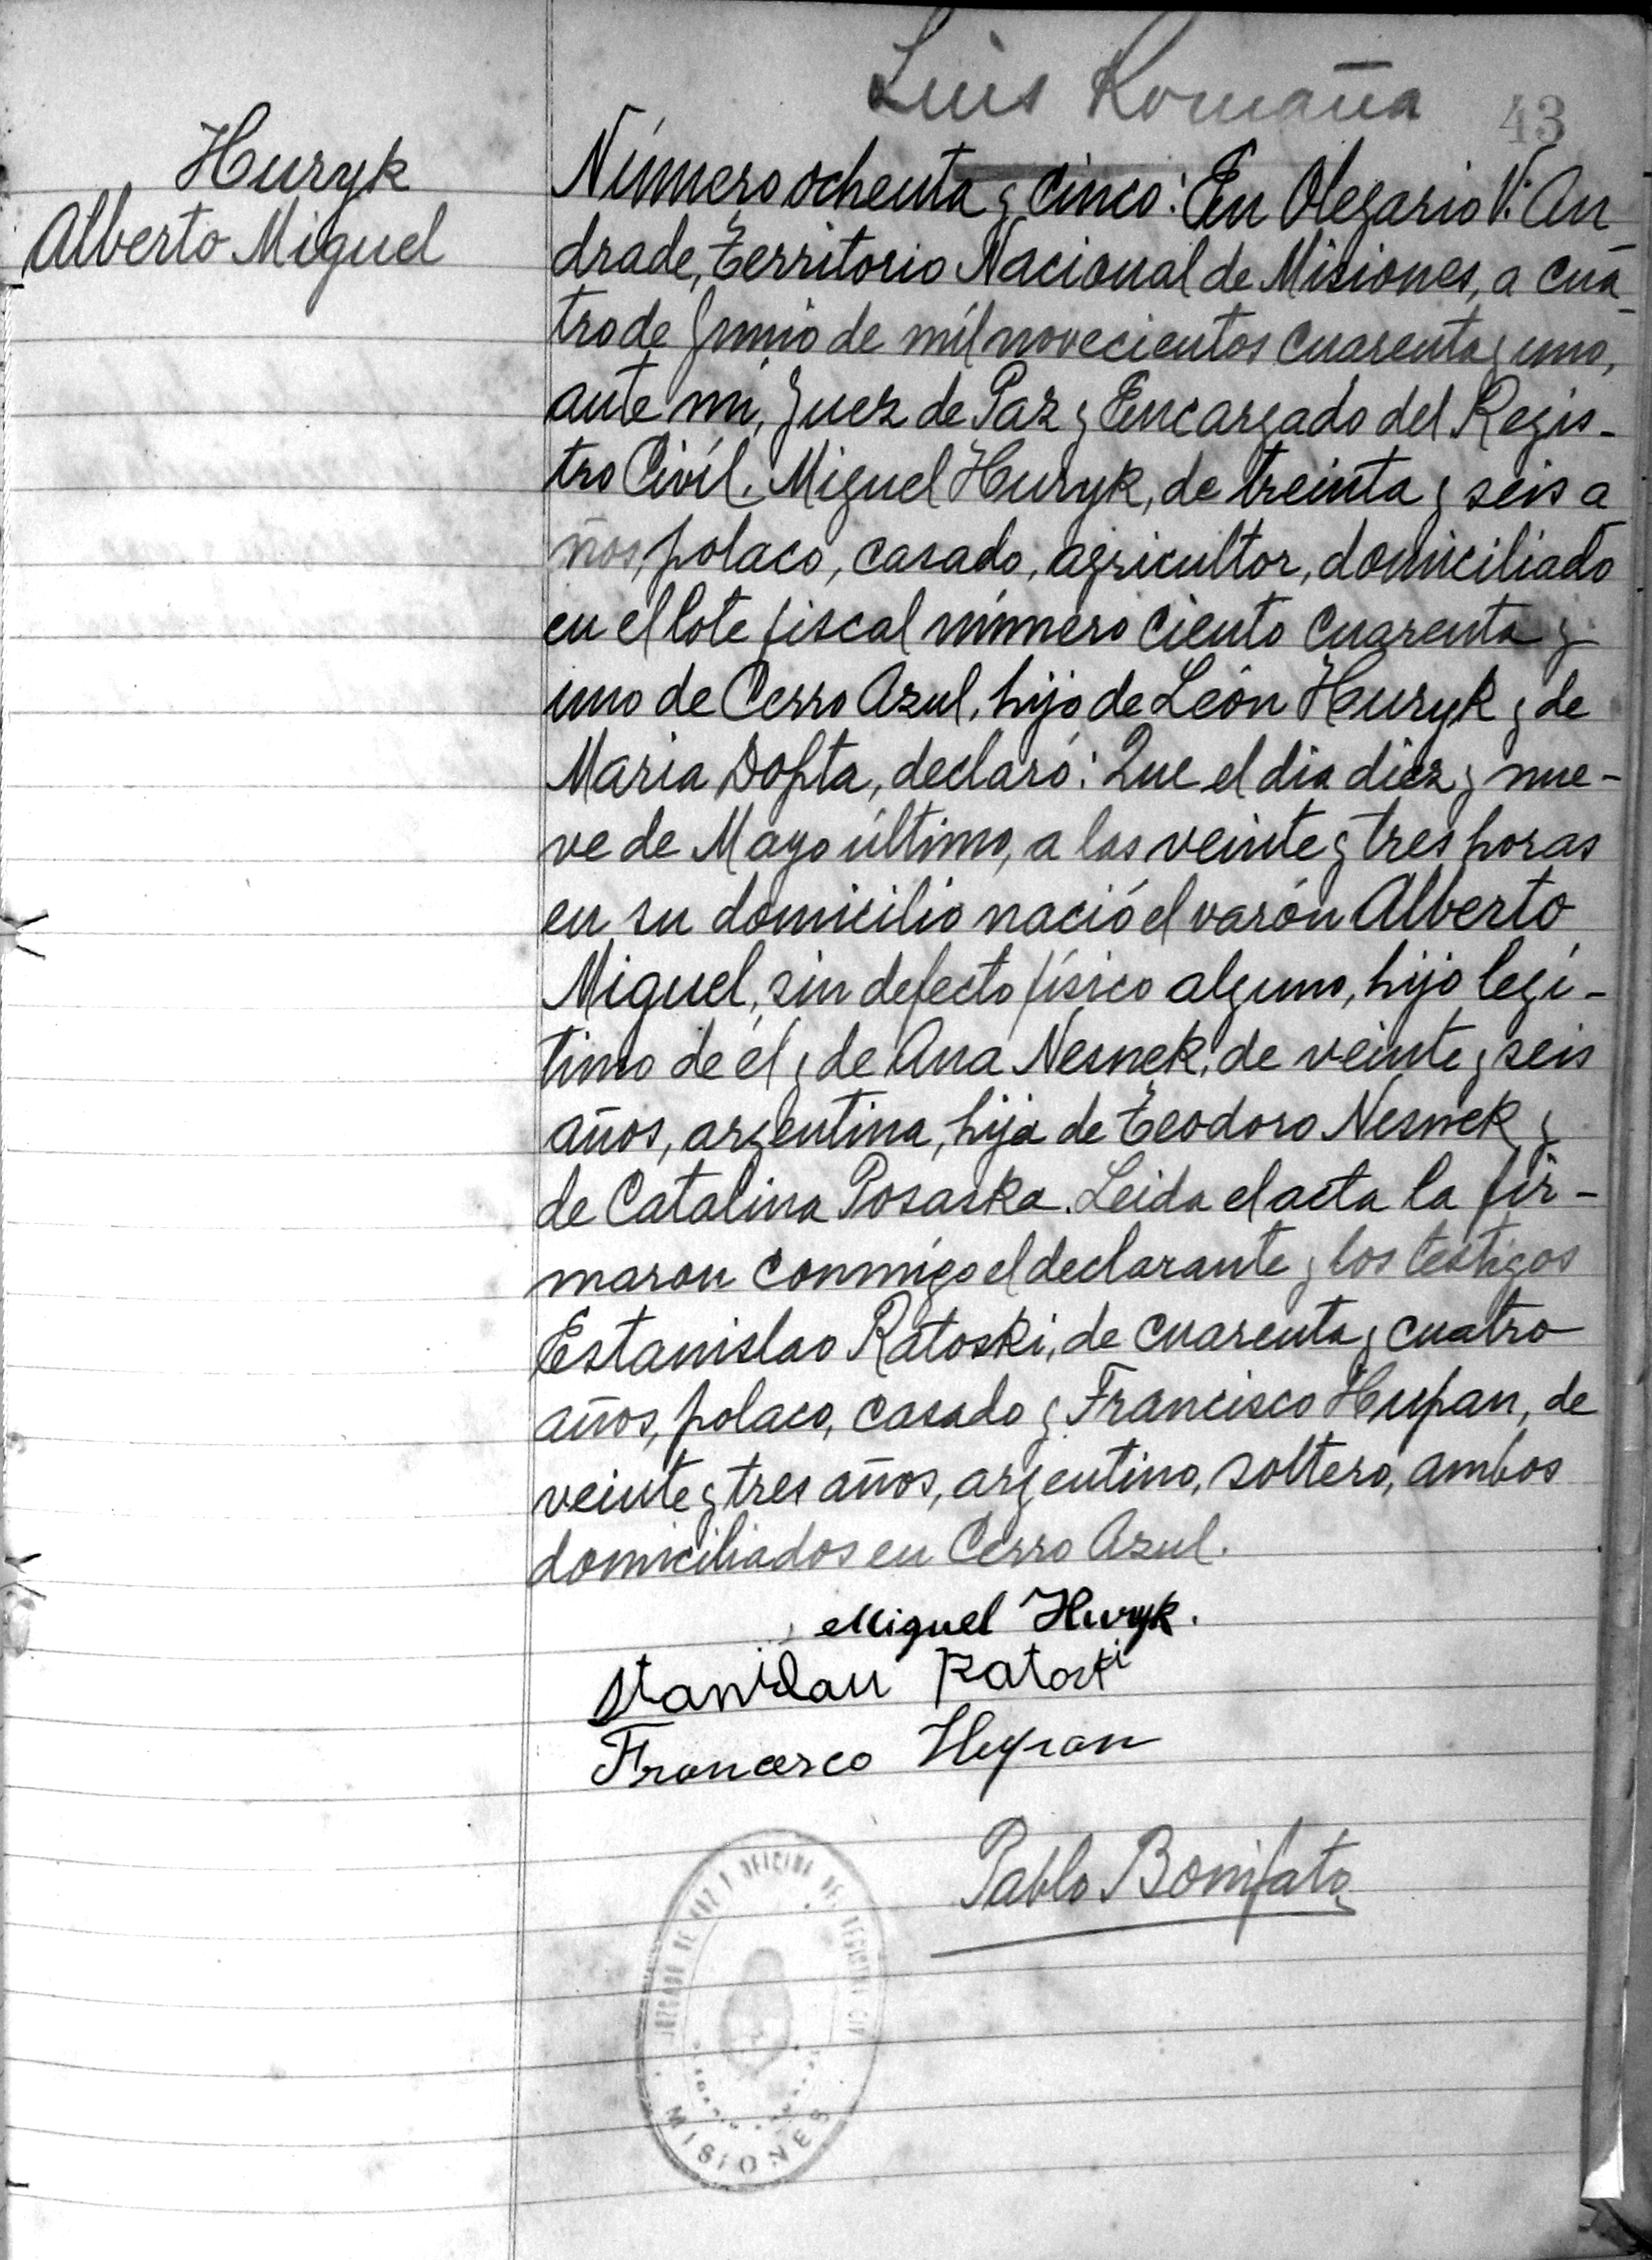 Luis Romaña
43
Huryk
Alberto Miguel
Número ochenta y cinco: En Olegario V. An
drade, Territorio Nacional de Misiones, a cua
tro de Junio de mil novecientos cuarenta y uno,
ante mi, Juez de Paz y Encargado del Regis-
tro Civil, Miguel Huryk, de treinta y seis a
ños, polaco, casado, agricultor, domiciliado
en el lote fiscal número ciento cuarenta y
uno de Cerro Azul, hijo de León Huryk y de
Maria Dopta, declaró: Que el dia diez y nue-
ve de Mayo último, a las veinte y tres horas
en su domicilio nació el varón Alberto
Miguel, sin defecto físico alguno, hijo legí-
timo de él y de Ana Nesnek, de veinte y seis
años, argentina, hija de Teodoro Nesnek y
de Catalina Posaska. Leida el acta la fir-
maron conmigo el declarante y los testigos
Estanislao Ratoski, de cuarenta y cuatro
años, polaco, casado y Francisco Hupan, de
veinte y tres años, argentino, soltero, ambos
domiciliados en Cerro Azul.
Miguel Huryk.
Stanislau Ratoski
Francisco Hupan
Pablo Bonifato
JUZGADO DE PAZ Y OFICINA DEL REGISTRO CIVIL
MISIONES